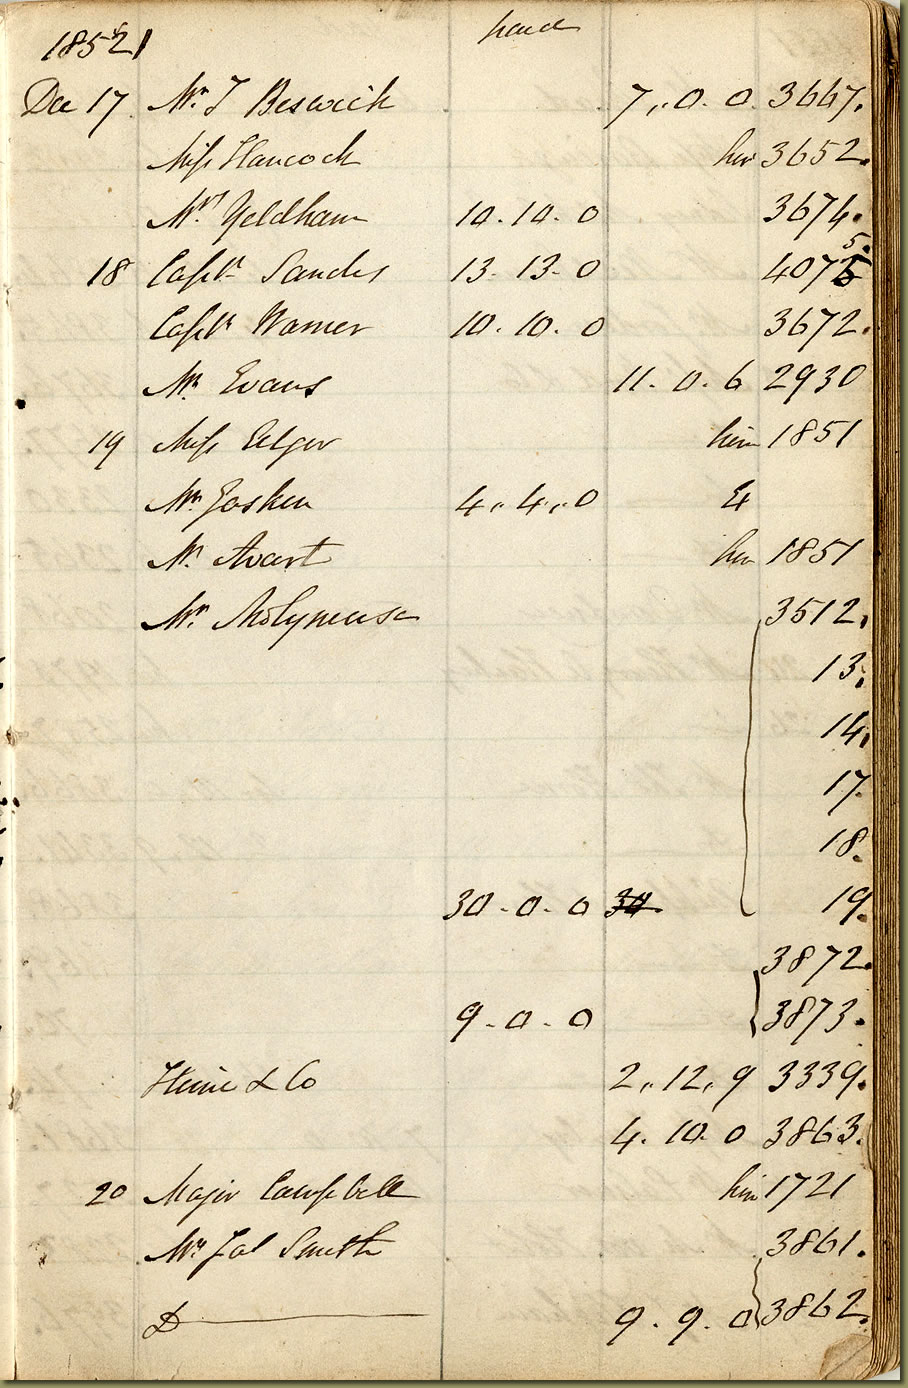 1852 paid
Dec 17 Mr J Beswick 7,,0.0 3667.
Miss Hancock her 3652.
Mrs Yeldham 10.10.0 3674.
18 Captn Sandes 13.13.0 4075
Captn Warner 10.10.0 3672.
Mr Evans 11.0.6 2930
19 Miss Edgor him 1851
Mr 4,,4,,0
Mr Avart her 1851
Mr Molyneux 3512.
13.
14.
17.
18.
30.0.0 30 19.
3872.
9.0.0 3873.
& Co 2,,12,9 3339.
4.10.0 3863.
20 Major Campbell him 1721
Mr Jas Smith 3861.
D 9.9.0 3862.